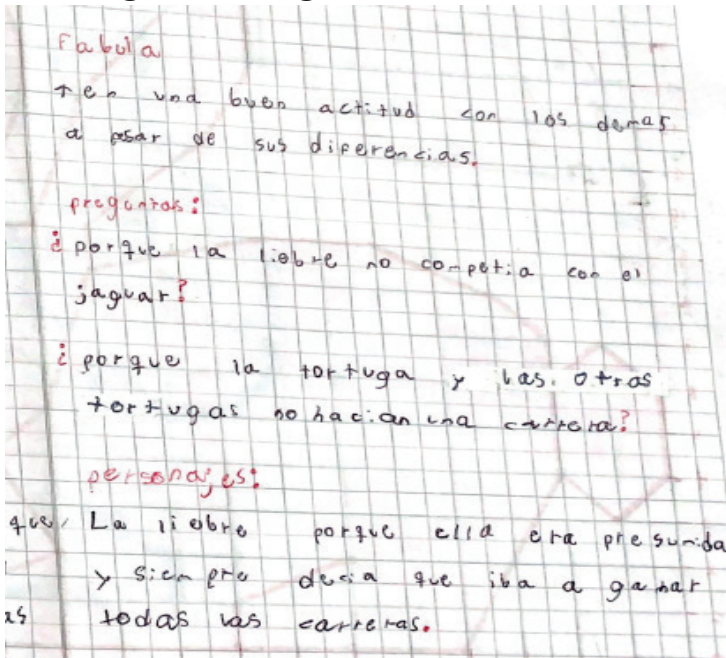 Fabula
ten una buen actitud con los demas
a pesar de sus diferencias.
preguntas:
¿porque la liebre no competia con el
jaguar?
¿porque la tortuga y las otras
tortugas no hacian una carrera?
personajes:
que, La liebre porque ella era presumida
y siempre decia que iba a ganar
as todas las carreras.